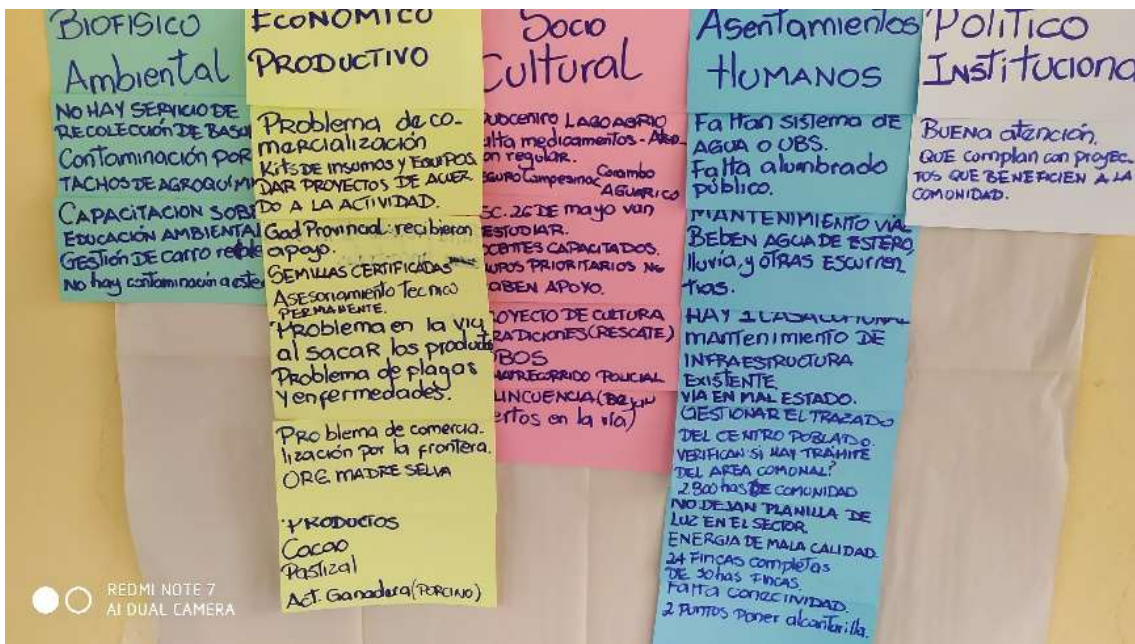 BIOFISICO
Ambiental
NO HAY SERVICIO DE
RECOLECCIÓN DE
Contaminación POR
TACHOS DE
CAPACITACION
EDUCACIÓN AMBIENTAL
GESTIÓN DE CARRO
No hay contaminación
ECONOMICO
PRODUCTIVO
Problema de co-
mercialización
Kits DE insumos y EquiPos.
DAR PROYECTOS DE ACUER
DO A LA ACTIVIDAD.
Gad Provincial: recibieron
apoyo.
SEMILLAS CERTIFICADAS
Asesoriamiento Tecnico
PERMANENTE.
Problema en la via
al sacar los
Problema de plagas
y enfermedades.
Problema de comercia-
lización por la frontera.
ORG. MADRE SELVA
PRODUCTOS
Cacao
Pastizal
Act. Ganadera (PORCINO)
Socio
Cultural
LAGO AGRIO
medicamentos -
regular.
Campesino
AGUARICO
26 DE mayo van
ESTUDIAR.
CAPACITADOS.
PRIORITARIOS NO
APOYO.
DE CULTURA
(RESCATE)
POLICIAL
en la vía)
Asentamientos
HUMANOS
Faltan sistema de
AGUA O UBS.
Falta alumbrado
público.
MANTENIMIENTO
BEBEN AGUA DE ESTERO,
lluvia, y OTRAS ESCORREN
tias.
HAY 1 CASA COMUNAL
mantenimiento DE
INFRAESTRUCTURA
EXISTENTE
VIA EN MAL ESTADO.
GESTIONAR EL TRAZADO
DEL CENTRO POBLADO.
VERIFICAN SI HAY TRÁMITE
DEL AREA COMONAL?
2.800 has DE COMUNIDAD
NO DEJAN PLANILLA DE
LUZ EN EL SECTOR
ENERGIA DE MALA CALIDAD.
24 Fincas completas
DE 50 has FINCAS.
Falta conectividad.
2 PUNTOS PONER alcantarilla.
Politico
BUENA atención.
QUE cumplan con proyec-
TOS QUE BENEFICIEN A LA
COMUNIDAD.
REDMI NOTE 7
AI DUAL CAMERA